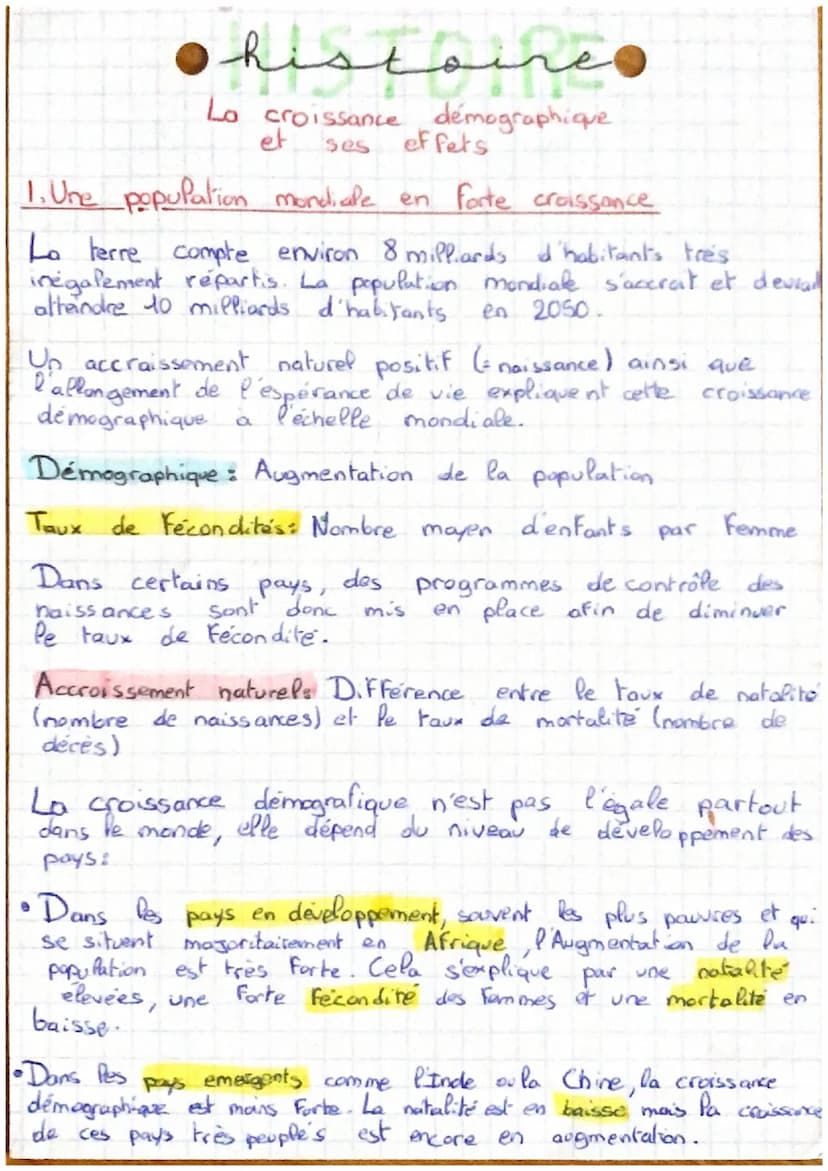 HISTOIRE
histoire
La croissance démographique
et ses effets
1. Une population mondiale en forte croissance
La terre compte environ 8 milliards d'habitants très
inégalement répartis. La population mondiale s'accroit et devrait
atteindre 10 milliards d'habitants en 2050.
Un accraissement naturel positif (= naissance) ainsi que
l'allongement de l'espérance de vie expliquent cette croissance
démographique à l'échelle mondiale.
Démographique : Augmentation de la population
Taux de Fécondités : Nombre moyen d'enfants par Femme
Dans certains pays, des programmes de contrôle des
naissances sont donc mis en place afin de diminuer
le taux de Fécondité.
Accroissement naturel : Différence entre le taux de natalité
(nombre de naissances) et le taux de mortalité (nombre de
décès)
La croissance démografique n'est pas l'égale partout
dans le monde, elle dépend du niveau de développement des
pays :
• Dans les pays en développement, souvent les plus pauvres et qui
se situent majoritairement en Afrique, l'Augmentation de la
population est très Forte. Cela s'explique par une natalité
élevées, une forte Fécondité des Femmes et une mortalité en
baisse.
• Dans les pays emergents comme l'Inde ou la Chine, la croissance
démographique est moins Forte. La natalité est en baisse mais la croissance
de ces pays très peuplés est encore en augmentation.